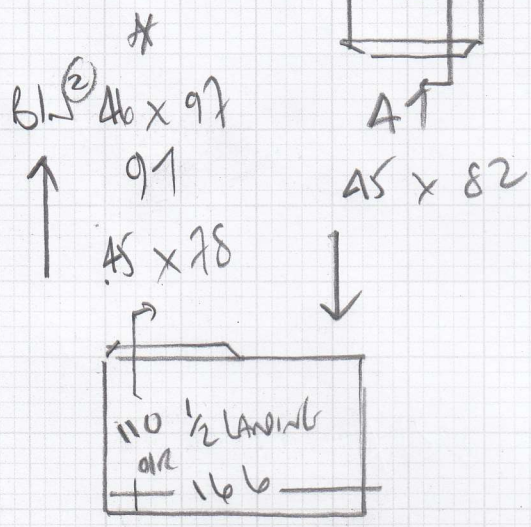 *
BIN ② 46 x 97
91
45 x 78
41
45 x 82
110 1/2 LANDING
166